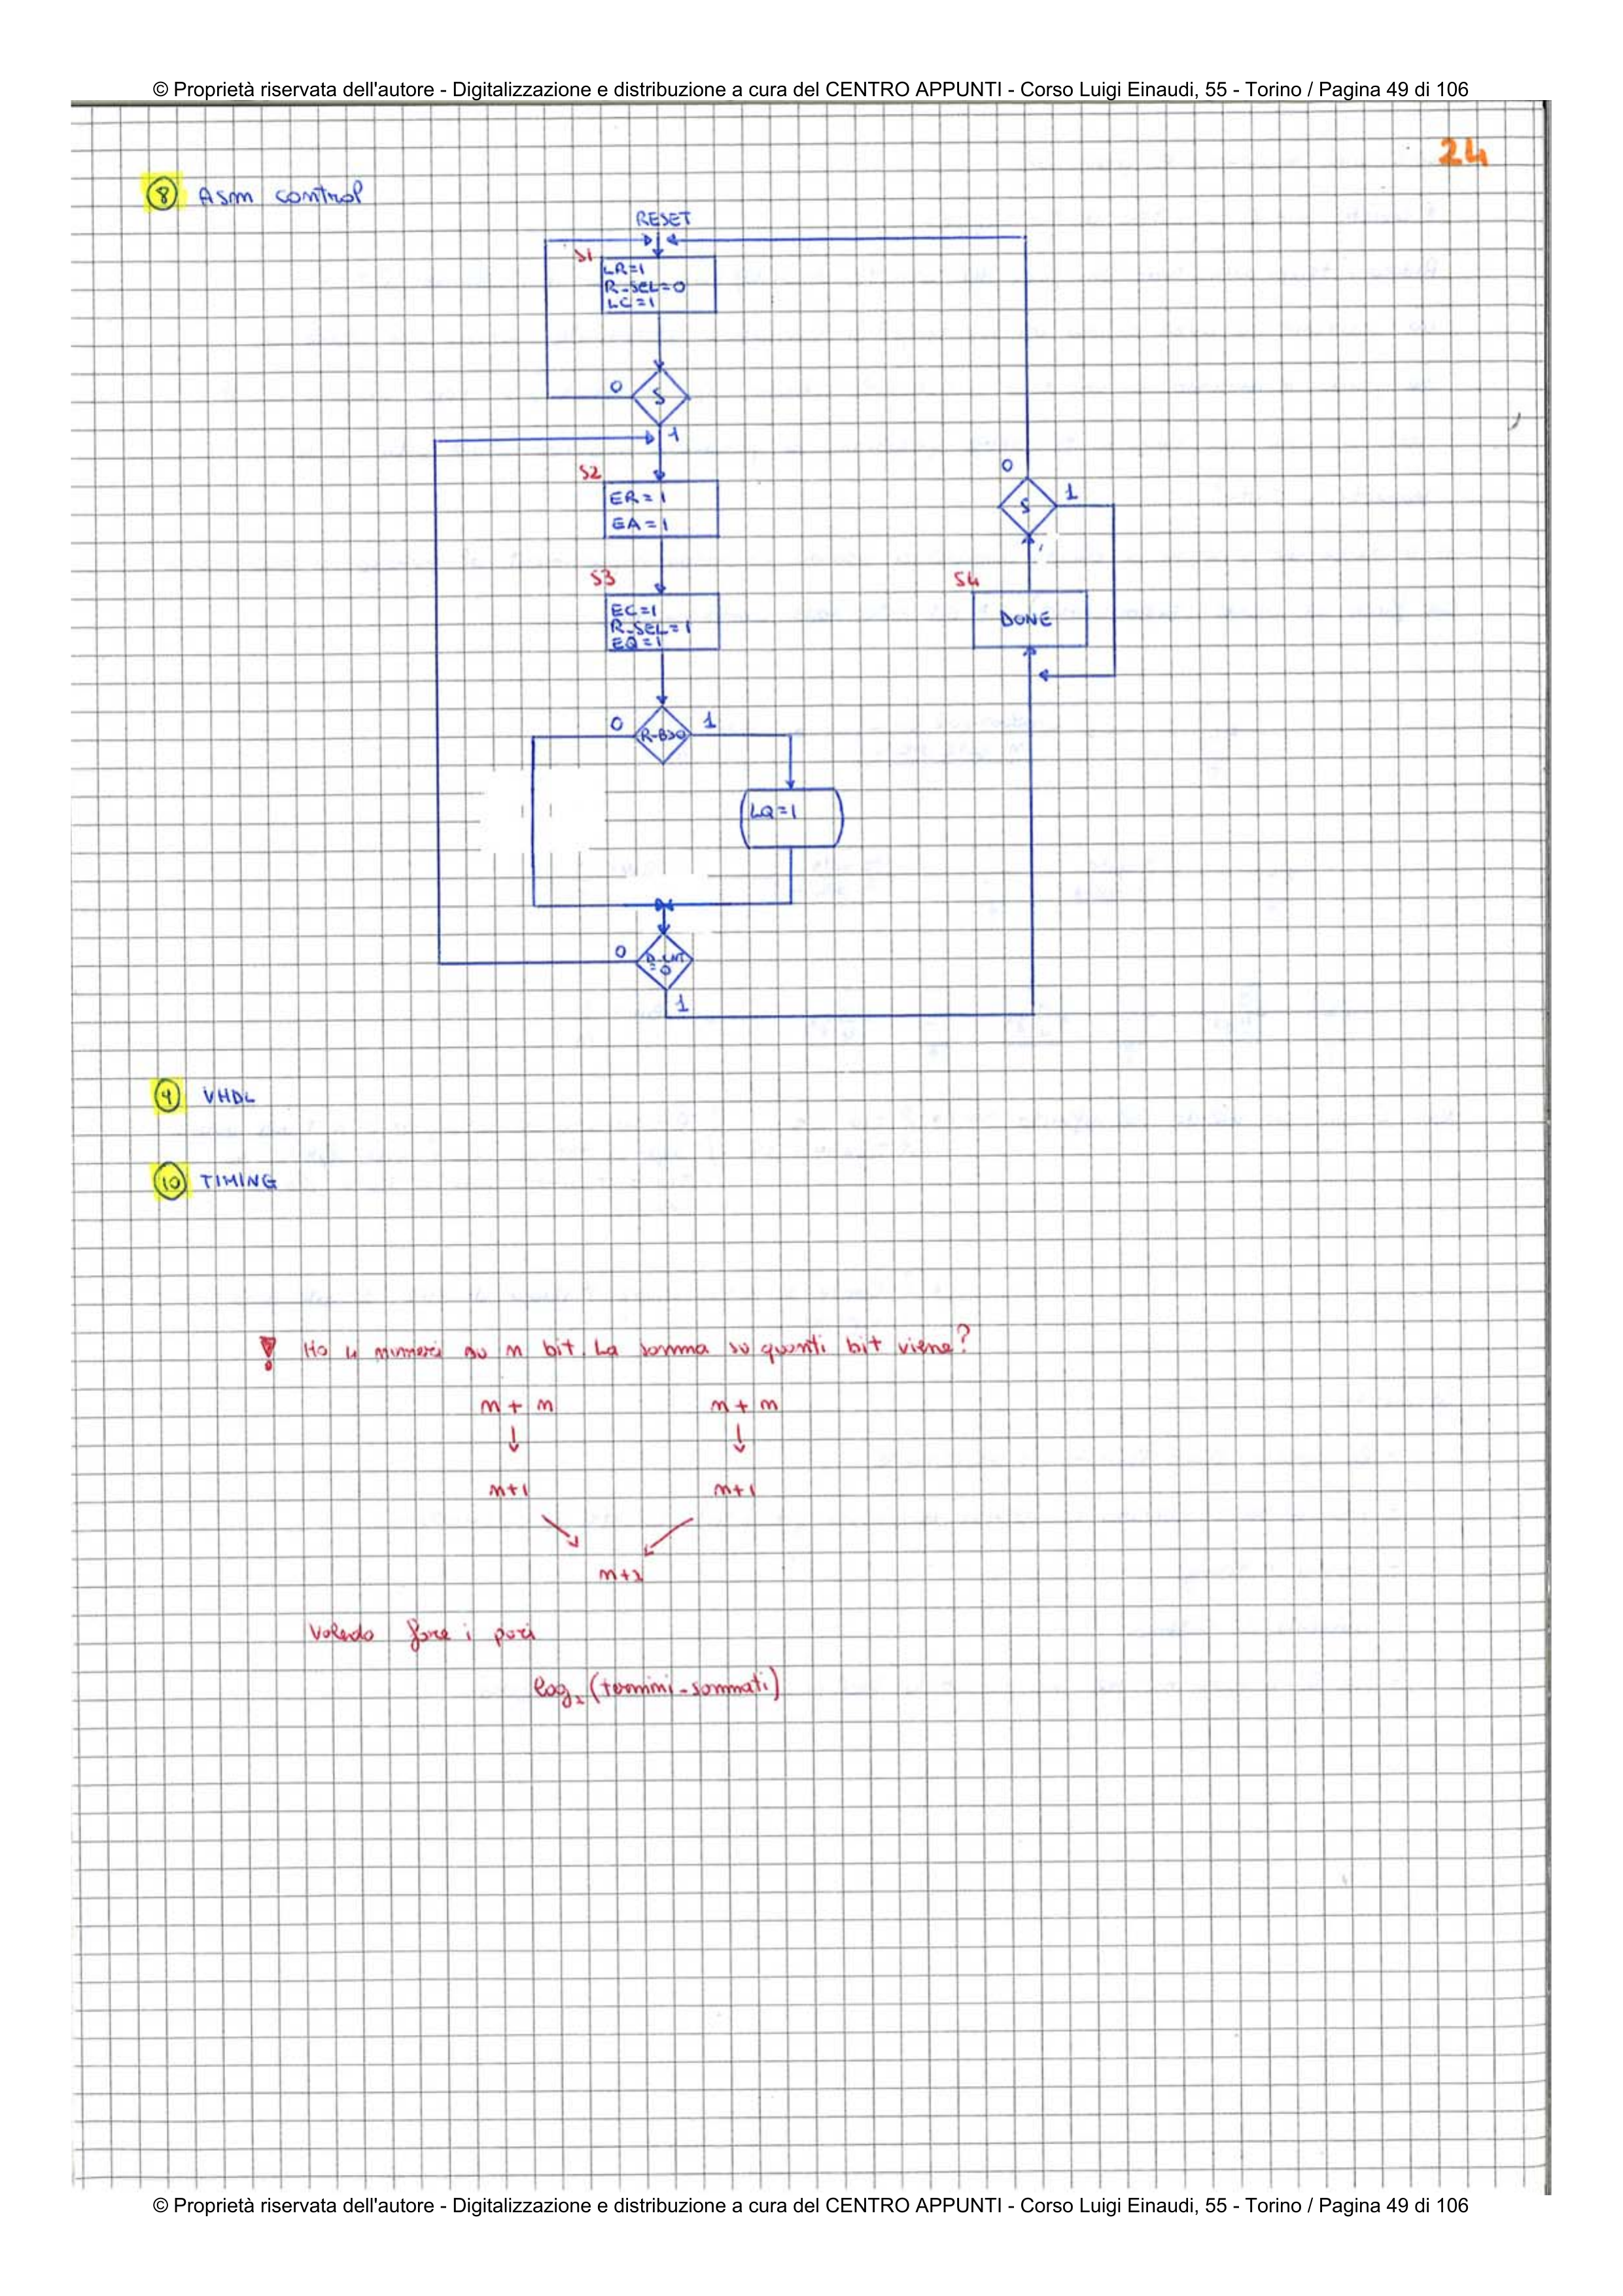 © Proprietà riservata dell'autore - Digitalizzazione e distribuzione a cura del CENTRO APPUNTI - Corso Luigi Einaudi, 55 - Torino / Pagina 49 di 106
24
8 Asm control
RESET
S1
LR=1
R_SEL=0
LC=1
0
S
1
S2
ER=1
EA=1
0
S
1
S3
EC=1
R_SEL=1
EQ=1
S4
DONE
0
R-B≥0
1
LQ=1
0
=0
1
9 VHDL
10 TIMING
! Ho 4 numeri su n bit. La somma su quanti bit viene?
n + n n + n
↓ ↓
n+1 n+1
n+2
Volendo fare i pari
log₂ (termini-sommati)
© Proprietà riservata dell'autore - Digitalizzazione e distribuzione a cura del CENTRO APPUNTI - Corso Luigi Einaudi, 55 - Torino / Pagina 49 di 106